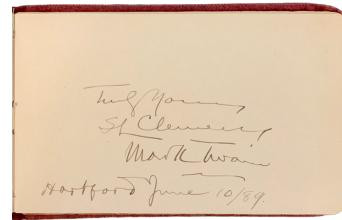 Truly Yours
SL Clemens
Mark Twain
Hartford June 10/89.